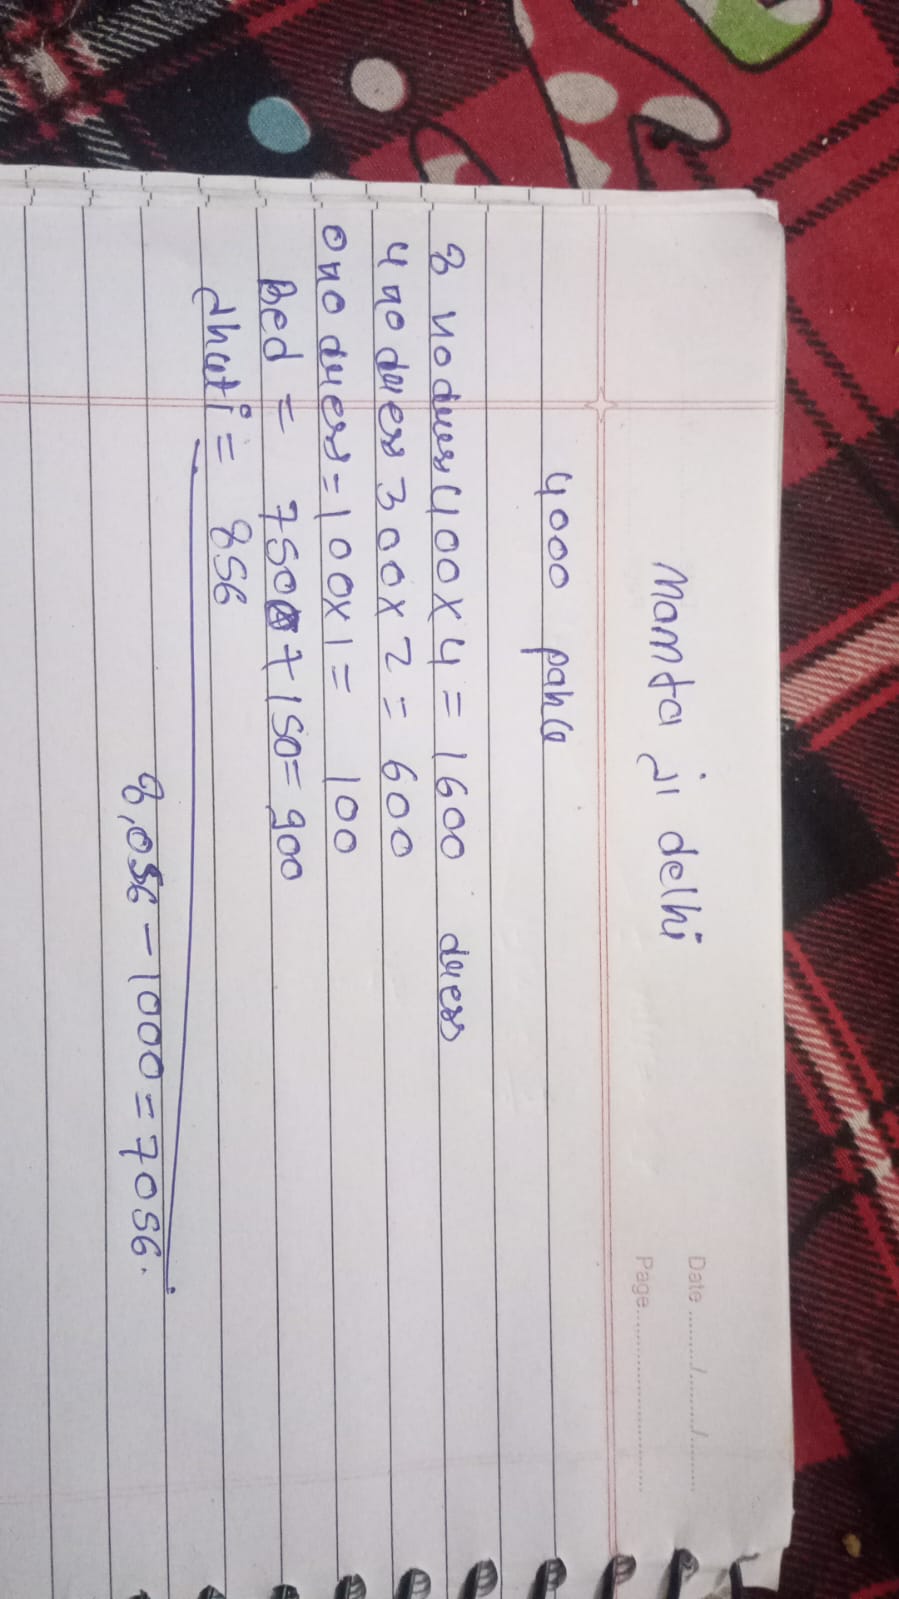 Date ......../......../........
Page........................
Mamta ji delhi
4000 pahle
8 no dress 400x4 = 1600 dress
4 no dress 300x2 = 600
0 no dress = 100x1 = 100
Bed = 750+150 = 900
dhoti = 856
8,056 - 1000 = 7056.